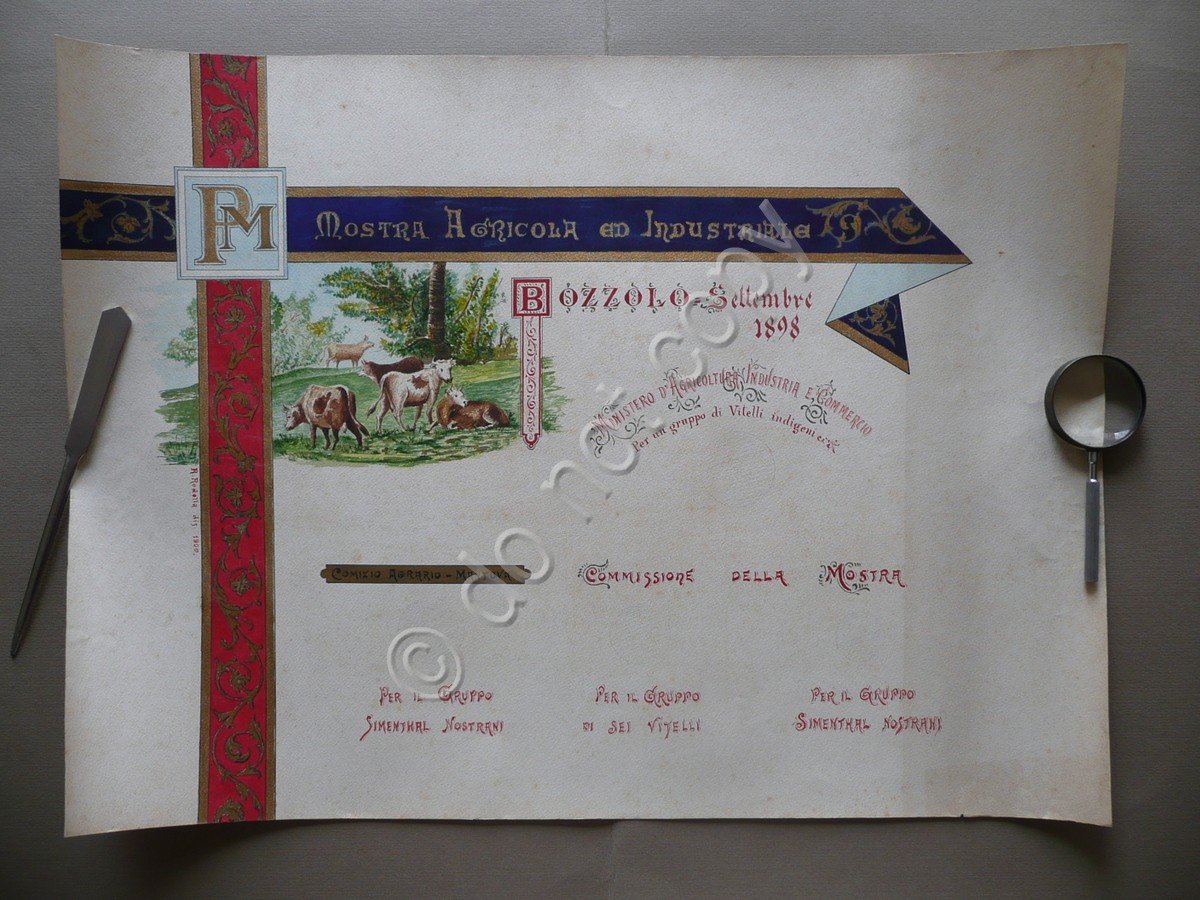 PM
Mostra Agricola ed Industriale
Bozzolo - Settembre
1898
Ministero d'Agricoltura, Industria e Commercio
Per un gruppo di Vitelli indigeni
dis 1900.
Comizio Agrario - Mantova
Commissione della Mostra
Per il Gruppo
Simenthal Nostrani
Per il Gruppo
di sei Vitelli
Per il Gruppo
Simenthal Nostrani
© do not copy